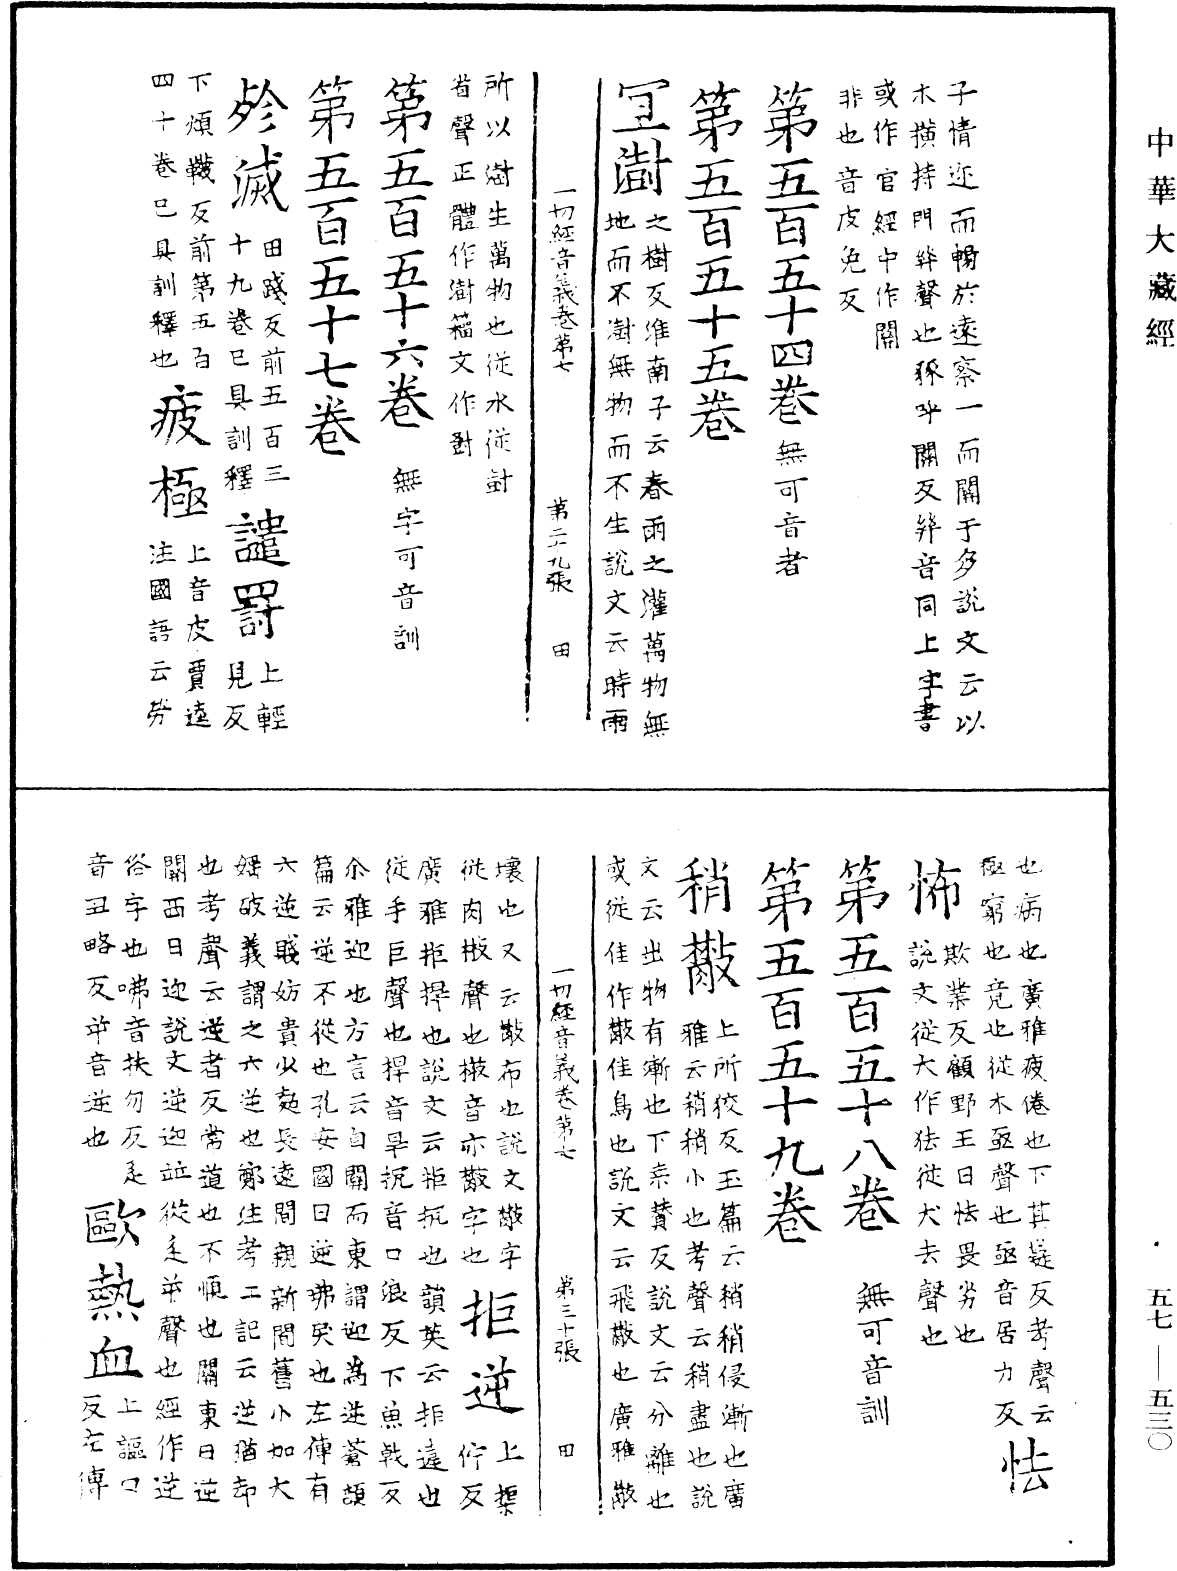 中華大藏經
子情迩而暢於遠察一而關于多說文云以
木撗持門𢇇聲也𢇇音關反𢇇音同上字書
或作官經中作關
非也音皮免反
第五百五十四卷 無可音者
第五百五十五卷
㝉澍 之樹反淮南子云春雨之灌萬物無
地而不澍無物而不生說文云時雨
一切經音義卷第七 第二十九張 田
所以澍生萬物也從水從尌
省聲正體作澍籀文作尌
第五百五十六卷 無字可音訓
第五百五十七卷
殄滅 田踐反前五百三
十九卷已具訓釋 譴罰 上輕
見反
下煩韈反前第五百
四十卷已具訓釋也 疲極 上音皮賈逵
注國語云勞
也病也廣雅疲倦也下其嶷反考聲云
極窮也竟也從木亟聲也亟音居力反 怯
怖 欺業反顧野王曰怯畏劣也
說文從大作㹤從犬去聲也
第五百五十八卷 無可音訓
第五百五十九卷
稍㪚 上所狡反玉篇云稍稍侵漸也廣
雅云稍稍小也考聲云稍盡也說
文云出物有漸也下桒賛反說文云分離也
或從隹作㪚隹鳥也說文云飛㪚也廣雅㪚
一切經音義卷第七 第三十張 田
壞也又云㪚布也說文㪚字
從肉㪔聲也㪔音亦㪚字也 拒逆 上渠
佇反
廣雅拒捍也說文云拒抗也韻英云拒違也
從手巨聲也捍音旱抗音口浪反下魚戟反
尒雅迎也方言云自關而東謂迎為逆蒼頡
篇云逆不從也孔安國曰逆弗戾也左傳有
六逆賤妨貴少陵長遠閒親新閒舊小加大
婬破義謂之六逆也鄭注考工記云逆猶却
也考聲云逆者反常道也不順也關東曰逆
關西曰迎說文逆迎竝從辵屰聲也經作逆
俗字也咈音扶勿反辵
音丑略反屰音逆也 歐熱血 上謳口
反左傳
五七—五三〇